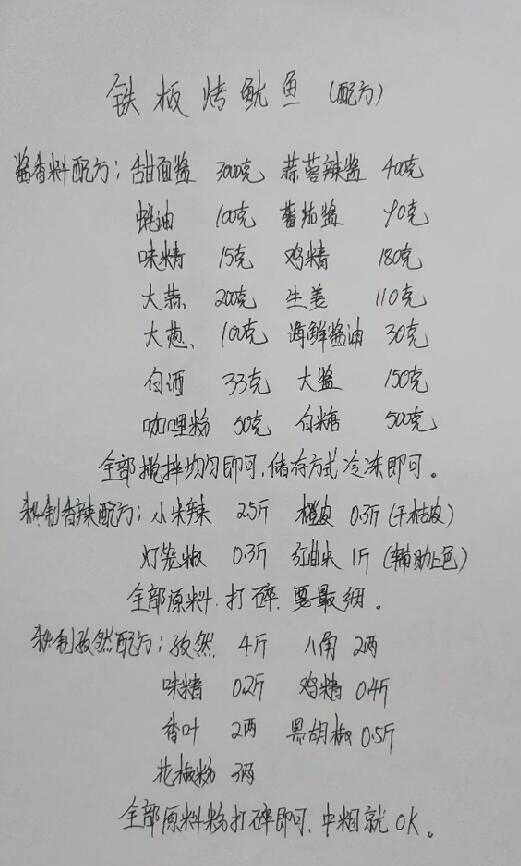 铁板烤鱿鱼(配方)
酱香料配方:甜面酱 3000克 蒜蓉辣酱 400克
蚝油 100克 蕃茄酱 90克
味精 15克 鸡精 180克
大蒜 200克 生姜 110克
大葱、 100克 海鲜酱油 30克
白酒 33克 大盐 150克
咖哩粉 50克 白糖 500克
全部搅拌均匀即可,储存方式冷冻即可。
秘制香辣配方:小米辣 25斤 橙皮 0.3斤(干桔皮)
灯笼椒 0.3斤 红曲米 1斤(辅助上色)
全部原料.打碎.要最细。
秘制孜然配方:孜然. 4斤 八角 2两
味精 0.2斤 鸡精 0.4斤
香叶 2两 黑胡椒 0.5斤
花椒粉 3两
全部原料粉打碎即可.中粗就OK。